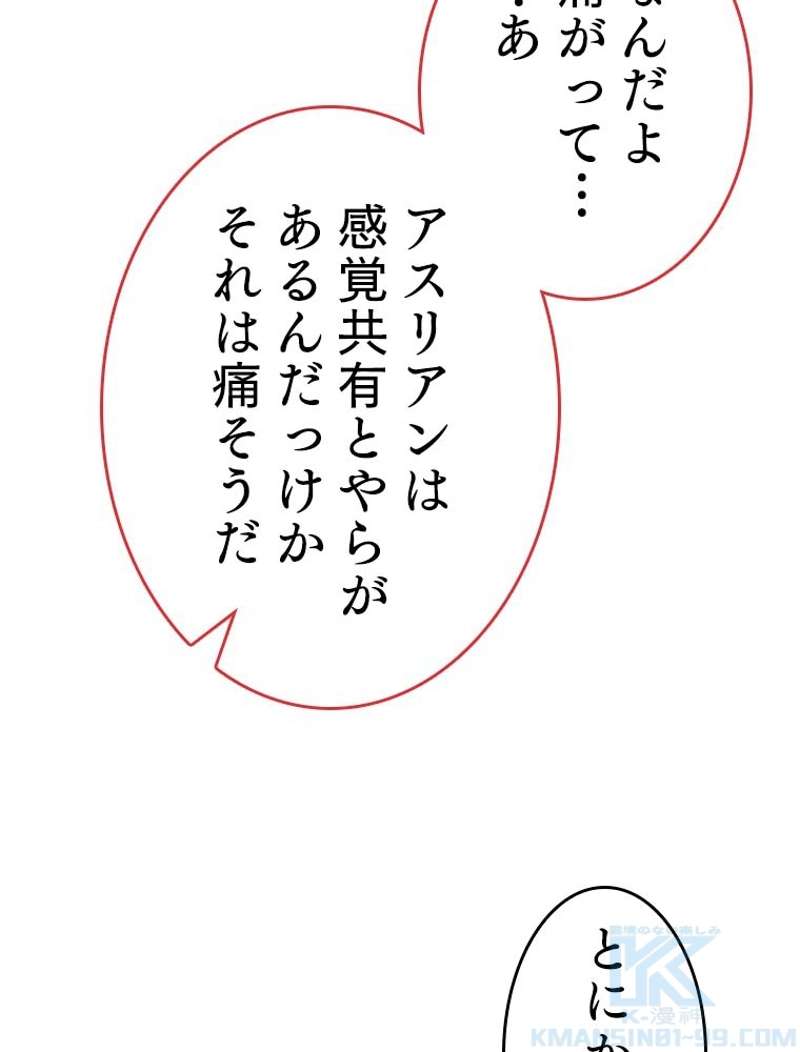 なんだよ
痛がって…
あ
アスリアンは
感覚共有とやらが
あるんだっけか
それは痛そうだ
とにか
環境のない楽しみ
K-漫神
KMANSIN01-99.COM